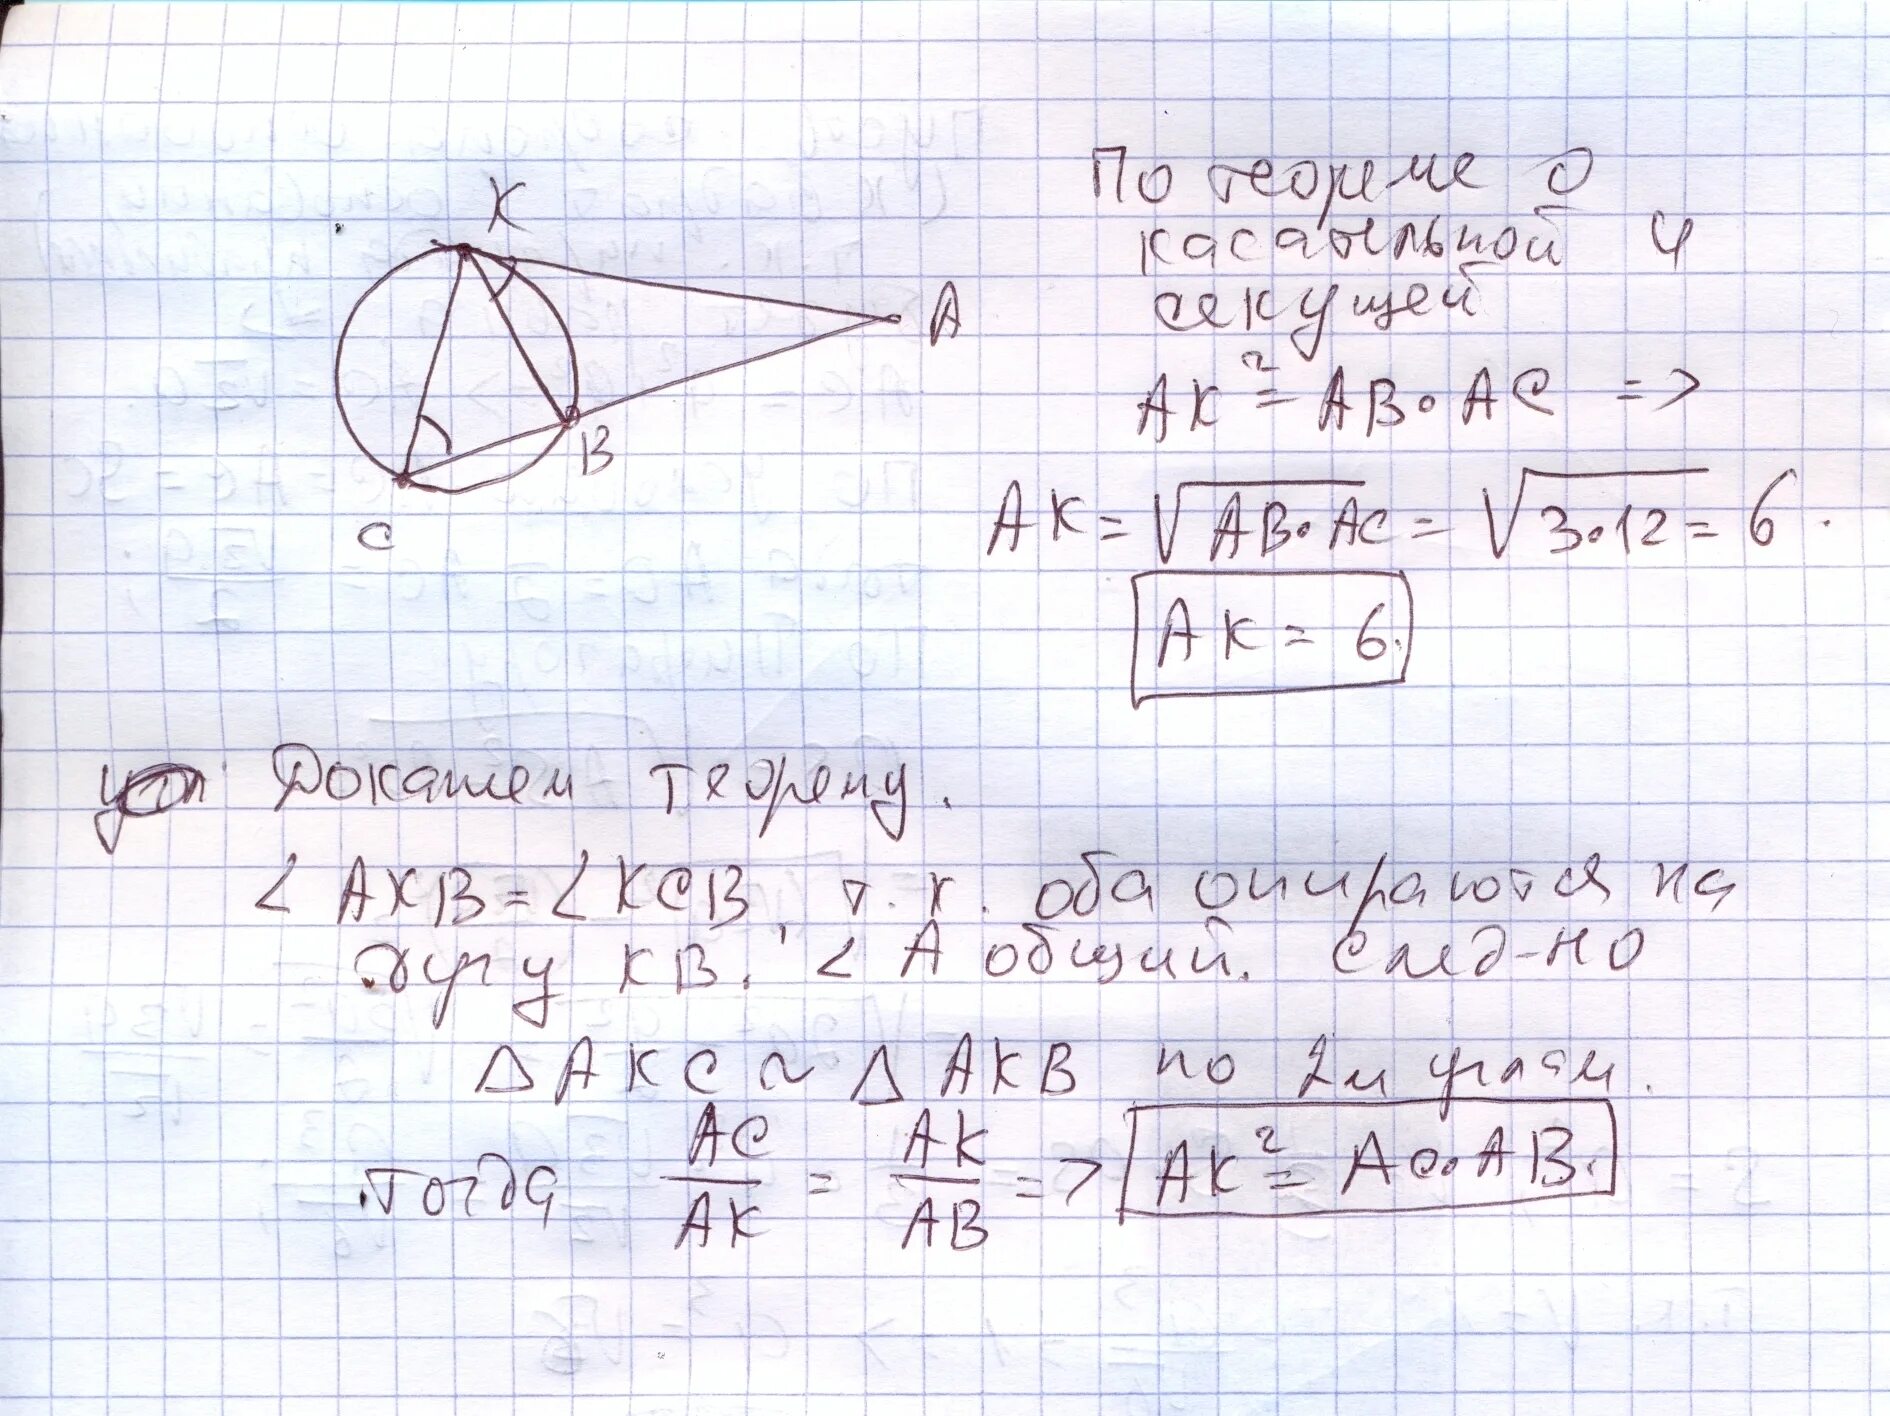 K
A
B
C
По теореме о
касательной и
секущей
AK² = AB • AC =>
AK = √AB • AC = √3 • 12 = 6.
AK = 6.
Докажем теорему.
< AKB = < KCB, т.к. оба опираются на
дугу KB. < A общий. След-но
△ AKC ~ △ AKB по 2м углам.
Тогда AC/AK = AK/AB => AK² = AC • AB.